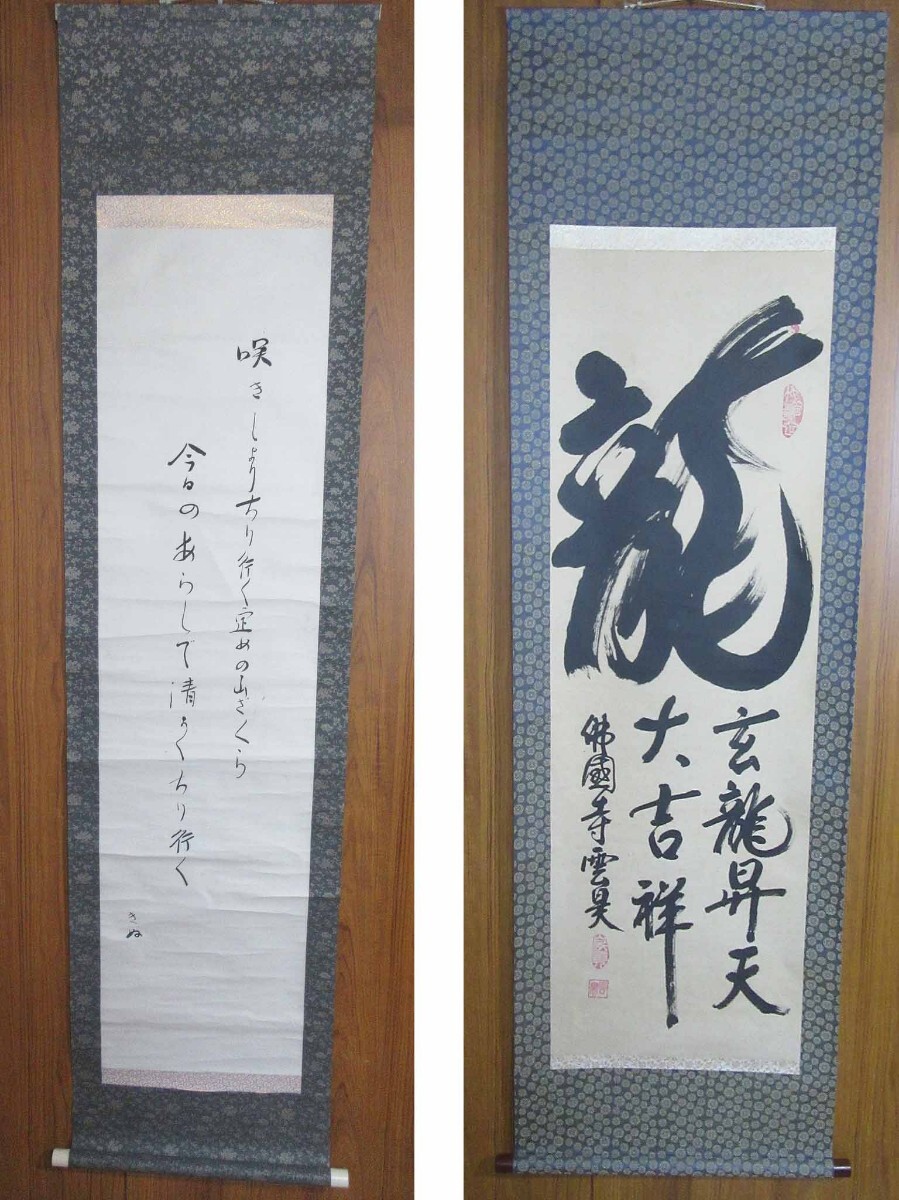 咲きしよりちり行く定めの山ざくら
今日のあらしで清くちり行く
きぬ
龍
玄龍昇天
大吉祥
佛國寺雲昊